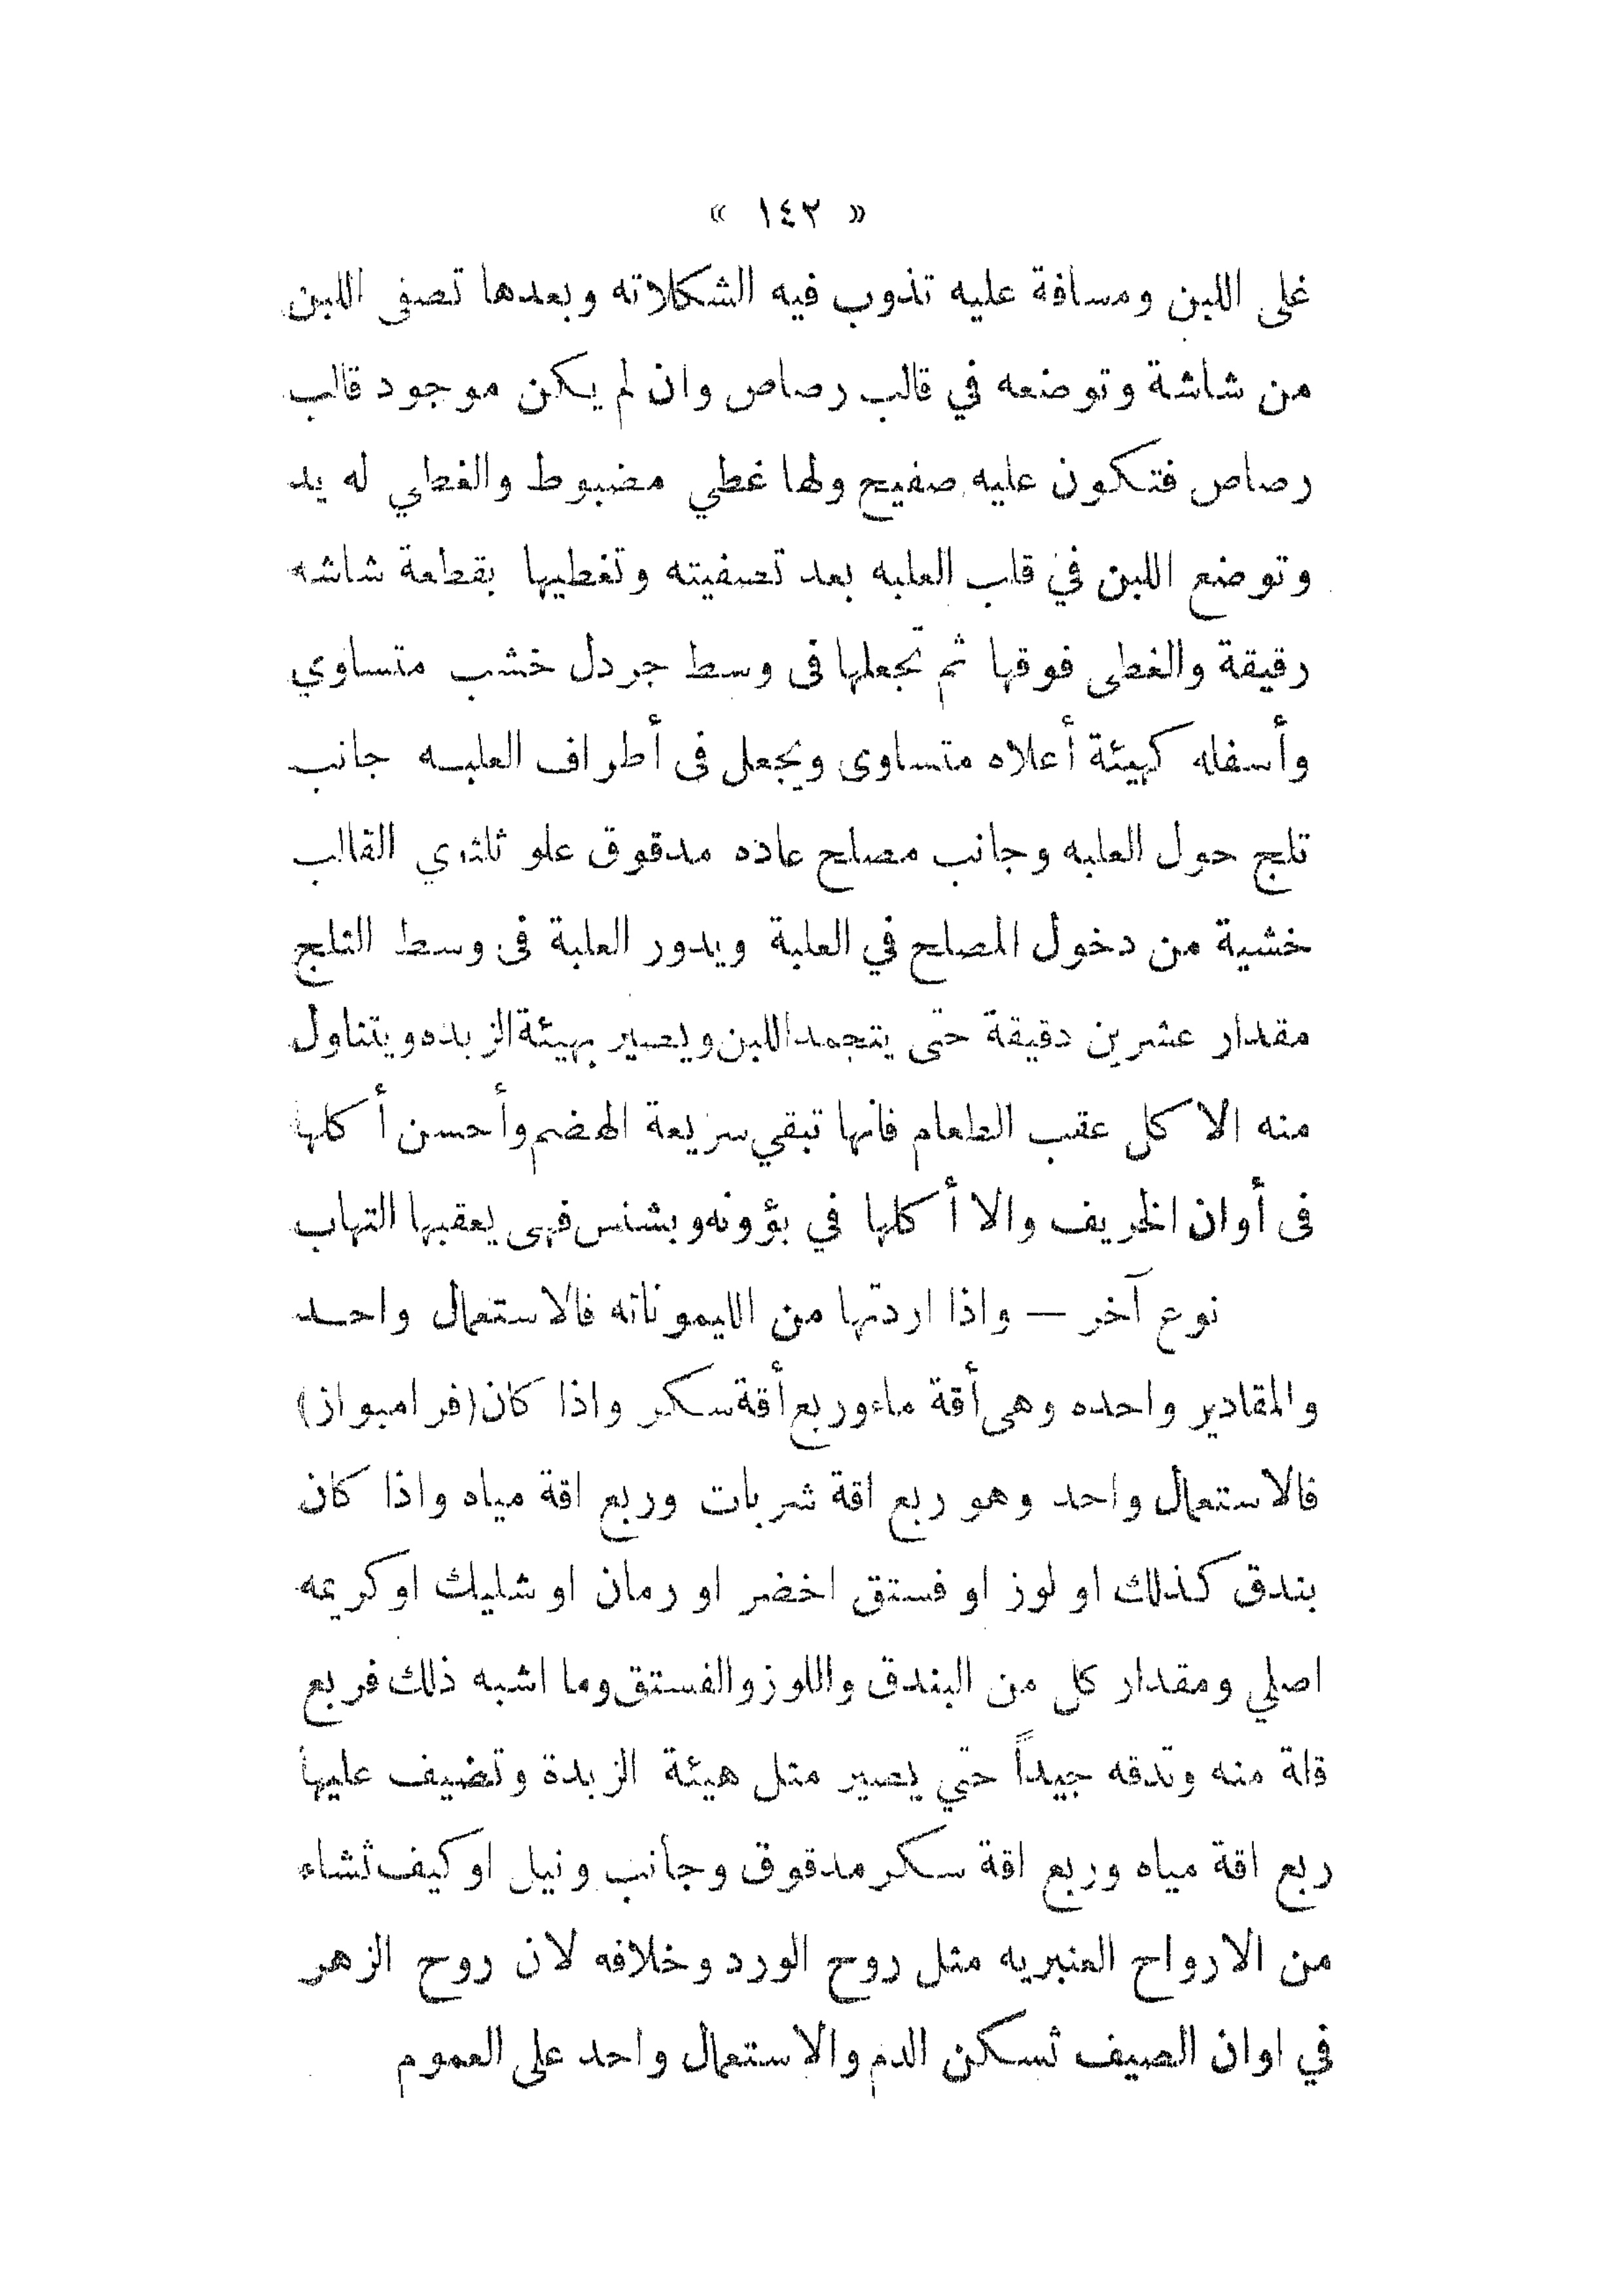 « ١٤٢ »
غلى اللبن ومسافة عليه تذوب فيه الشكلاته وبعدها تصفى اللبن
من شاشة وتوضعه في قالب رصاص وان لم يكن موجود قالب
رصاص فتكون عليه صفيح ولها غطي مضبوط والغطي له يد
وتوضع اللبن في قلب العلبه بعد تصفيته وتغطيها بقطعة شاشه
رقيقة والغطى فوقها ثم تجعلها فى وسط جردل خشب متساوي
وأسفله كهيئة أعلاه متساوى ويجعل فى أطراف العلبه جانب
تلج حول العلبه وجانب مصلح عاده مدقوق علو ثلثي القالب
خشية من دخول المصلح في العلبة ويدور العلبة فى وسط الثلج
مقدار عشرين دقيقة حتى يتجمد اللبن ويصير بهيئة الزبده ويتناول
منه الاكل عقب الطعام فانها تبقي سريعة الهضم وأحسن أكلها
فى أوان الخريف والا أكلها في بؤونه وبشنس فهى يعقبها التهاب
نوع آخر — واذا اردتها من الليموناته فالاستعمال واحد
والمقادير واحده وهى أقة ماء وربع أقة سكر واذا كان (فرامبواز)
فالاستعمال واحد وهو ربع اقة شربات وربع اقة مياه واذا كان
بندق كذلك او لوز او فستق اخضر او رمان او شليك او كريمه
اصلي ومقدار كل من البندق واللوز والفستق وما اشبه ذلك فربع
قلة منه وتدقه جيداً حتي يصير مثل هيئة الزبدة وتضيف عليها
ربع اقة مياه وربع اقة سكر مدقوق وجانب ونيل او كيف تشاء
من الارواح العنبريه مثل روح الورد وخلافه لان روح الزهر
في اوان الصيف تسكن الدم والاستعمال واحد على العموم